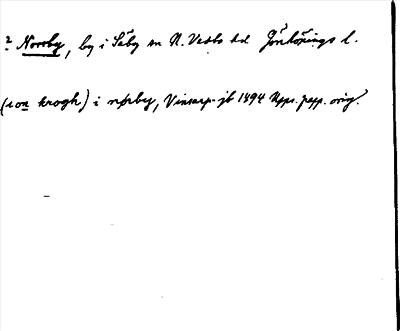 2 Norrby, by i Säby sn N. Vedbo hd Jönköpings l.
(1 on krogh) i nørby, Vinsarp-jb 1494 Upps. papp. orig.